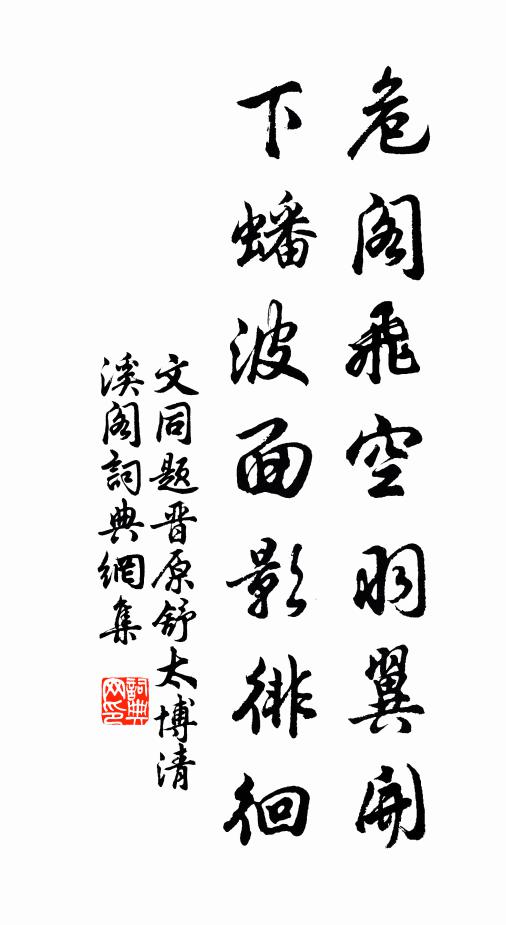 危阁飛空羽翼開
下蟠波面影徘徊
文同題晋原舒太博清
溪阁詞典網集
詞典网印